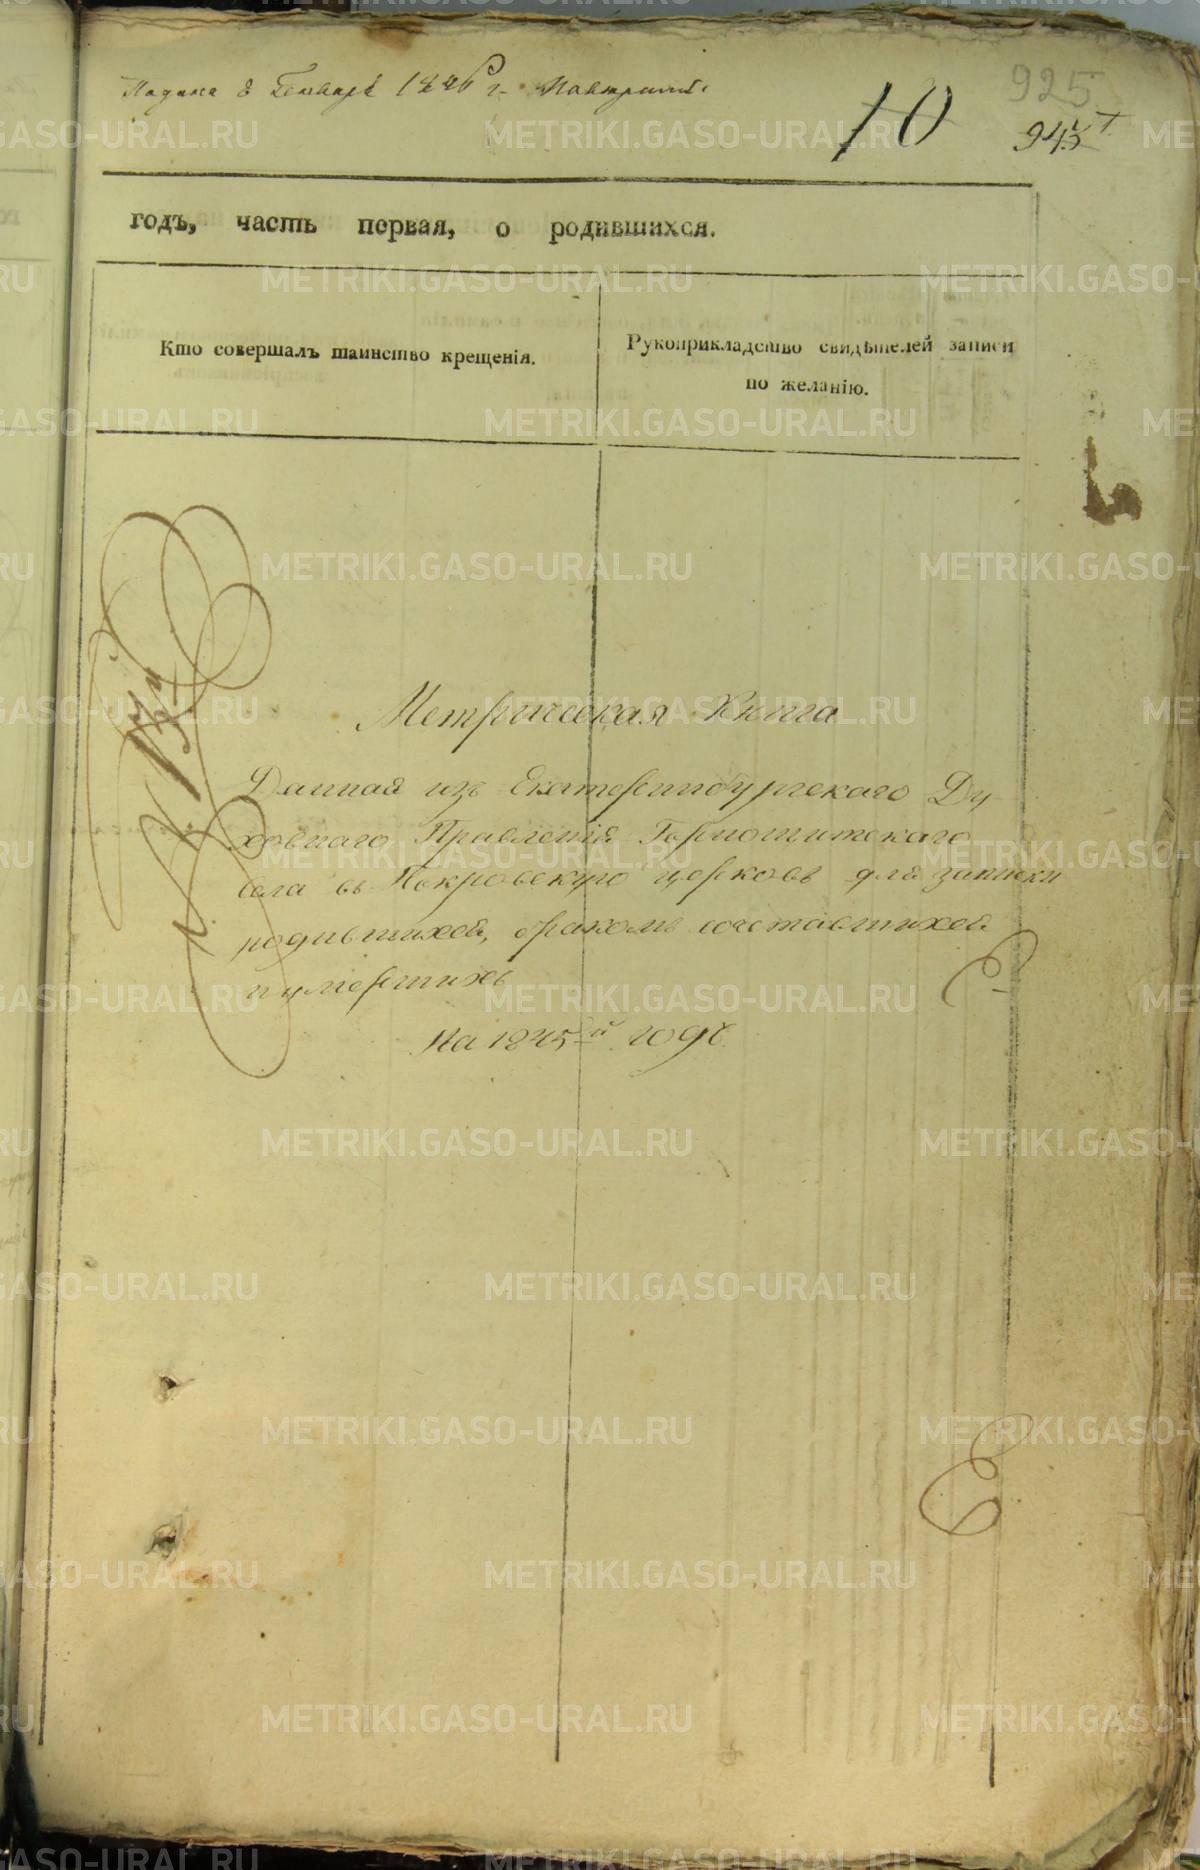 Подана 8 Генваря 1846 г.
10
925
945
годъ, часть первая, о родившихся.
Кто совершалъ таинство крещенія.
Рукоприкладство свидѣтелей записи
по желанію.
Метрическая Книга
Данная изъ Екатеринбургскаго Ду
ховнаго Правленія Горнощитскаго
села въ Покровскую церковь для записки
родившихся, бракомъ сочетавшихся
и умершихъ
На 1845-й годъ
METRIKI.GASO-URAL.RU